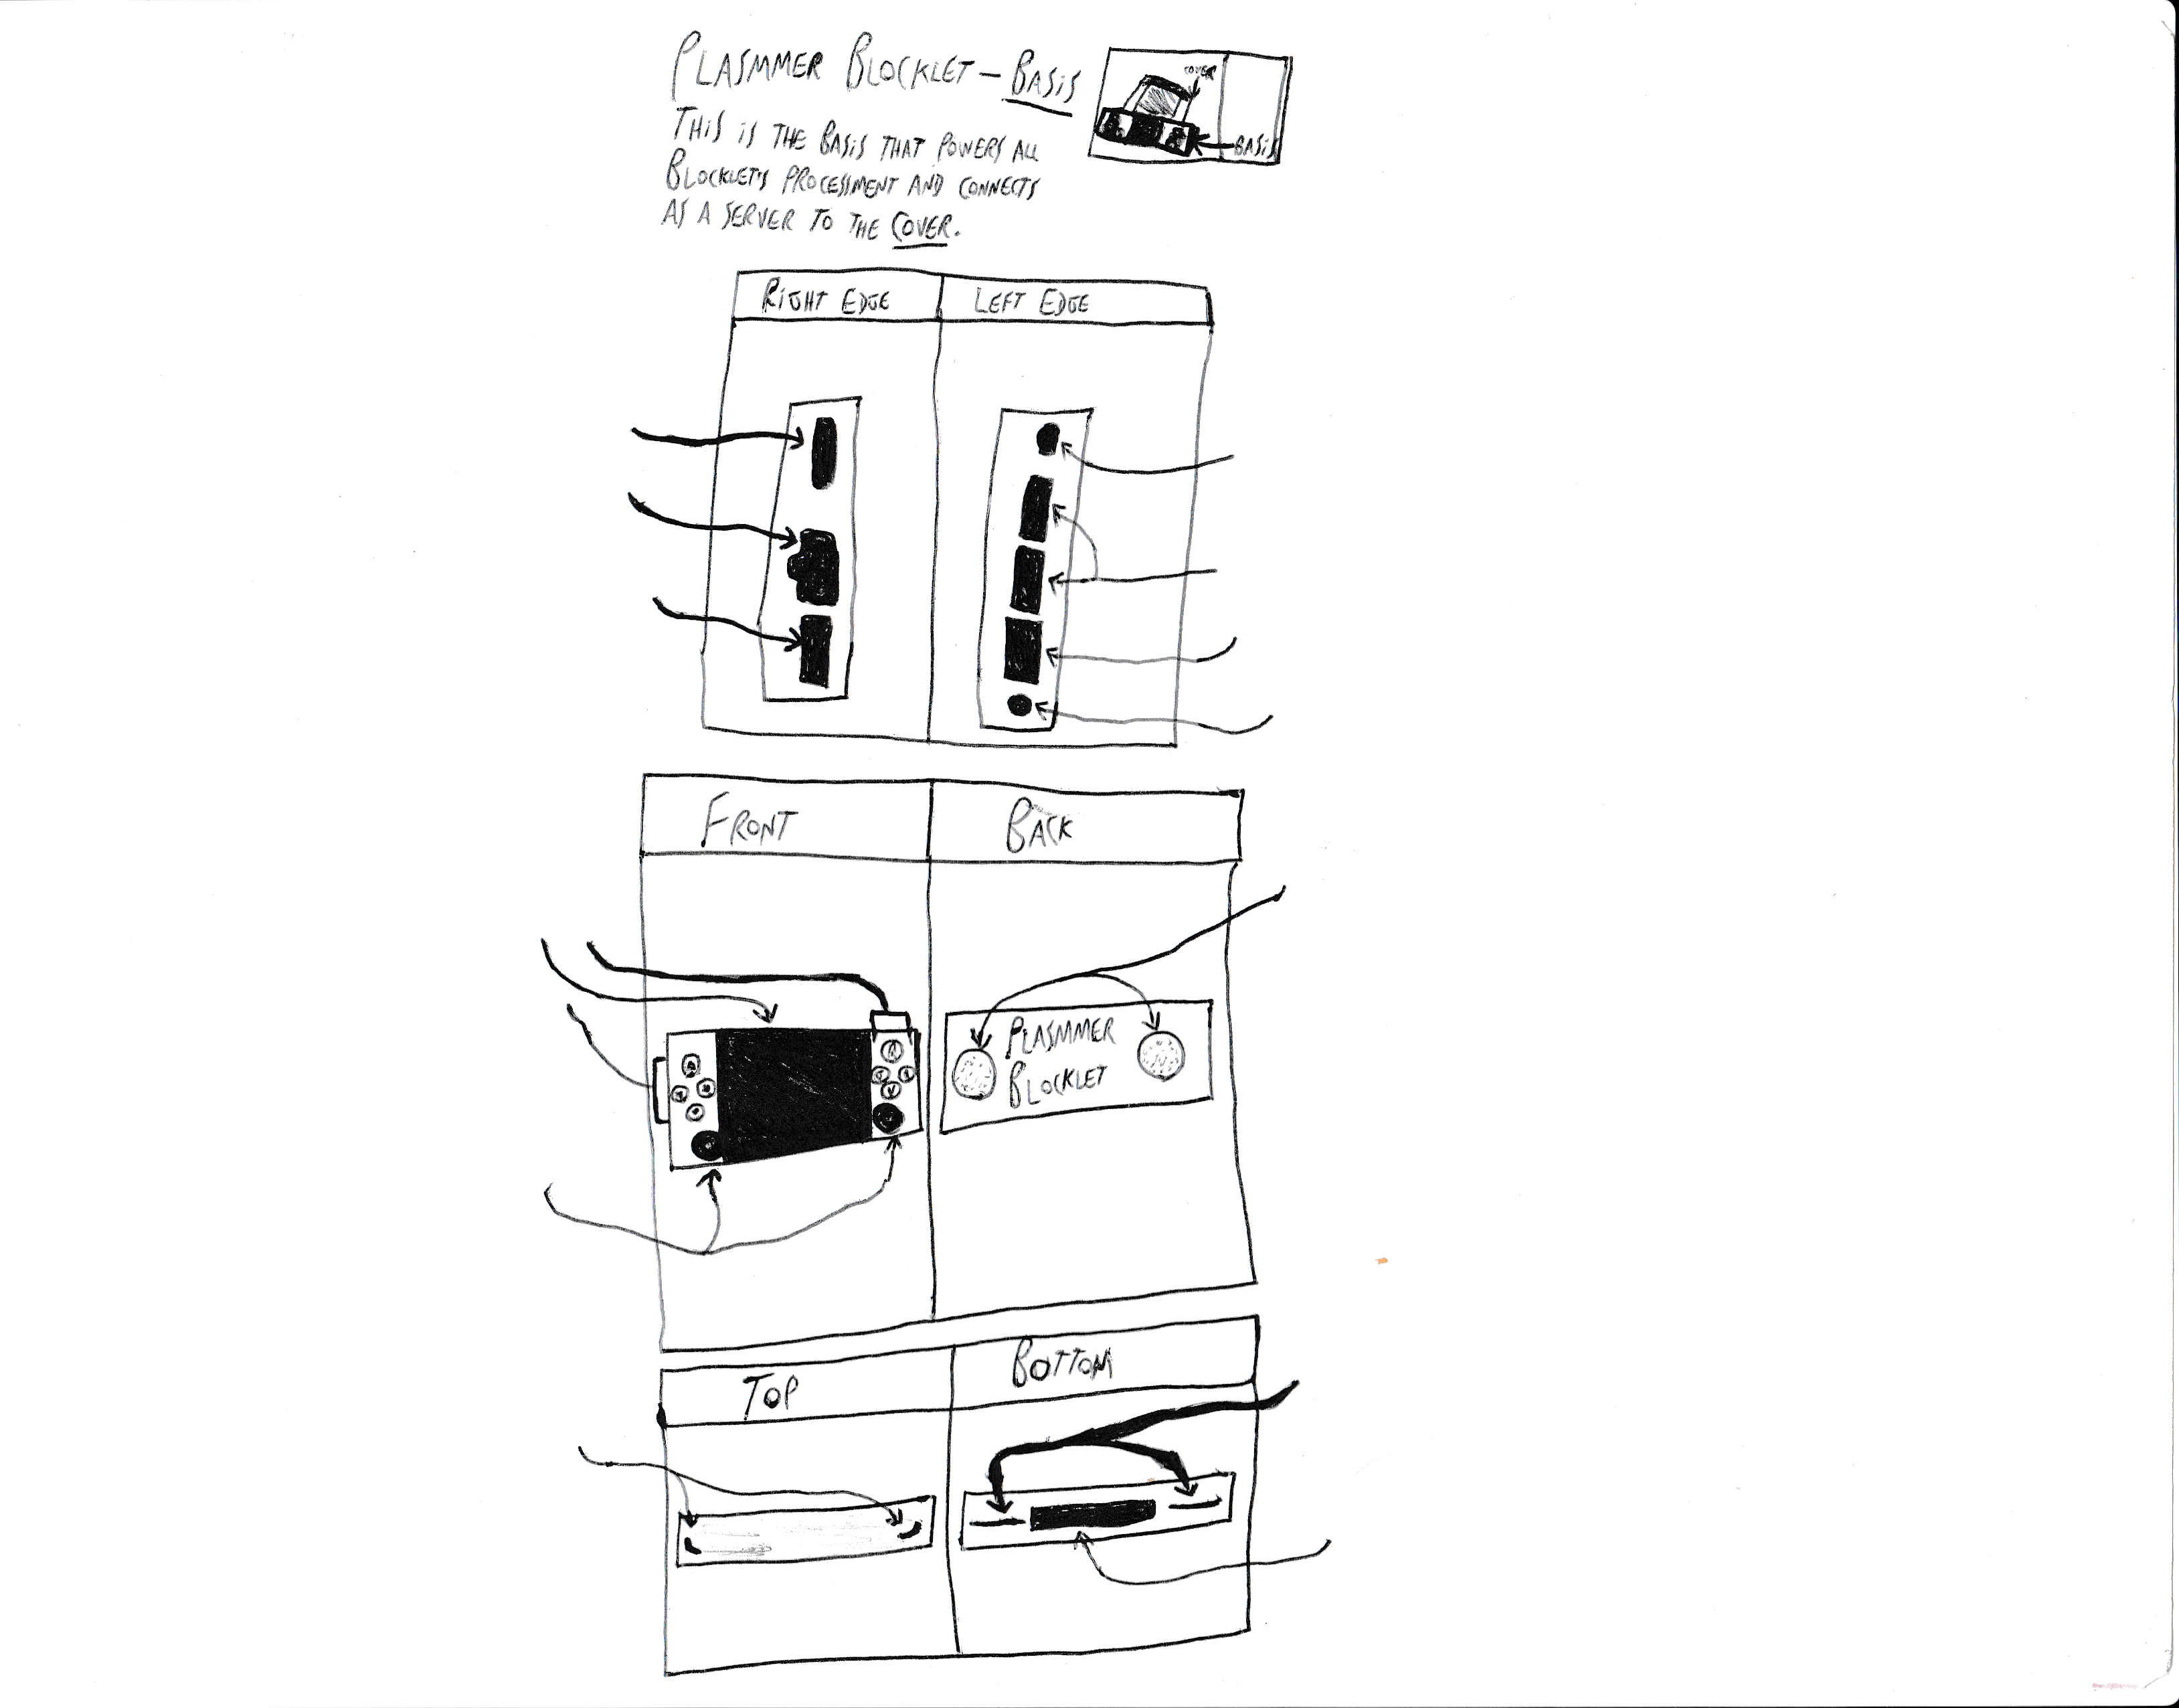 PLASMMER BLOCKLET - BASIS
COVER
BASIS
THIS IS THE BASIS THAT POWERS ALL
BLOCKLET'S PROCESSMENT AND CONNECTS
AS A SERVER TO THE COVER.
RIGHT EDGE
LEFT EDGE
FRONT
BACK
PLASMMER
BLOCKLET
TOP
BOTTOM